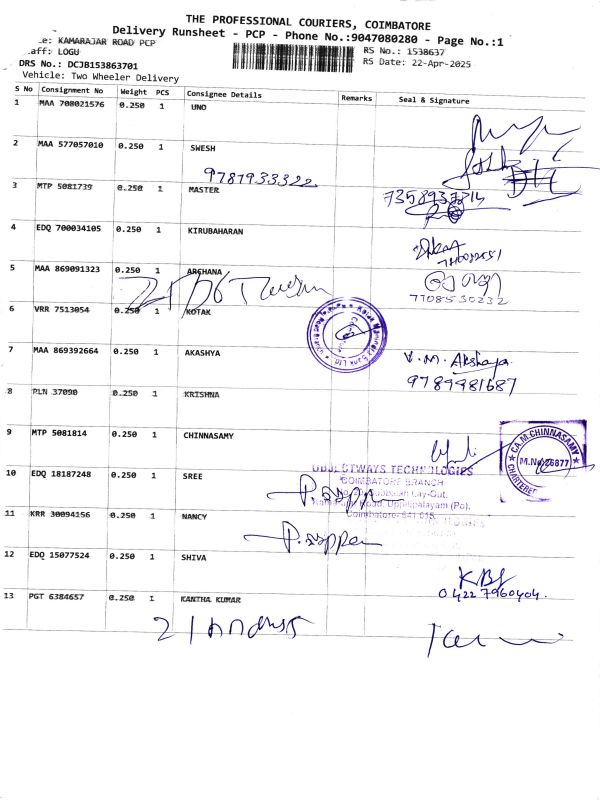 THE PROFESSIONAL COURIERS, COIMBATORE
Delivery Runsheet - PCP - Phone No.:9047080280 - Page No.:1
KAMARAJAR ROAD PCP
RS No.: 1538637
LOGU
RS Date: 22-Apr-2025
DRS No.: DCJB153863701
Vehicle: Two Wheeler Delivery
S No Consignment No Weight PCS Consignee Details Remarks Seal & Signature
1 MAA 708021576 0.250 1 UNO
2 MAA 577057010 0.250 1 SWESH
9787933322
3 MTP 5081739 0.250 1 MASTER
4 EDQ 700034105 0.250 1 KIRUBAHARAN
5 MAA 869091323 0.250 1 ARCHANA
7708530232
6 VRR 7513054 0.250 1 KOTAK
7 MAA 869392664 0.250 1 AKASHYA
V.M. Akshaya
9789981687
8 PLN 37090 0.250 1 KRISHNA
9 MTP 5081814 0.250 1 CHINNASAMY
CA.M.CHINNASAMY
M.No:26877
CHARTERED
10 EDQ 18187248 0.250 1 SREE
OBJECTWAYS TECHNOLOGIES
COIMBATORE BRANCH
Lay-Out,
Road, Uppilipalayam (Po),
Coimbatore-641 015.
11 KRR 30094156 0.250 1 NANCY
12 EDQ 15077524 0.250 1 SHIVA
KBS
04227960404.
13 PGT 6384657 0.250 1 KANTHA KUMAR